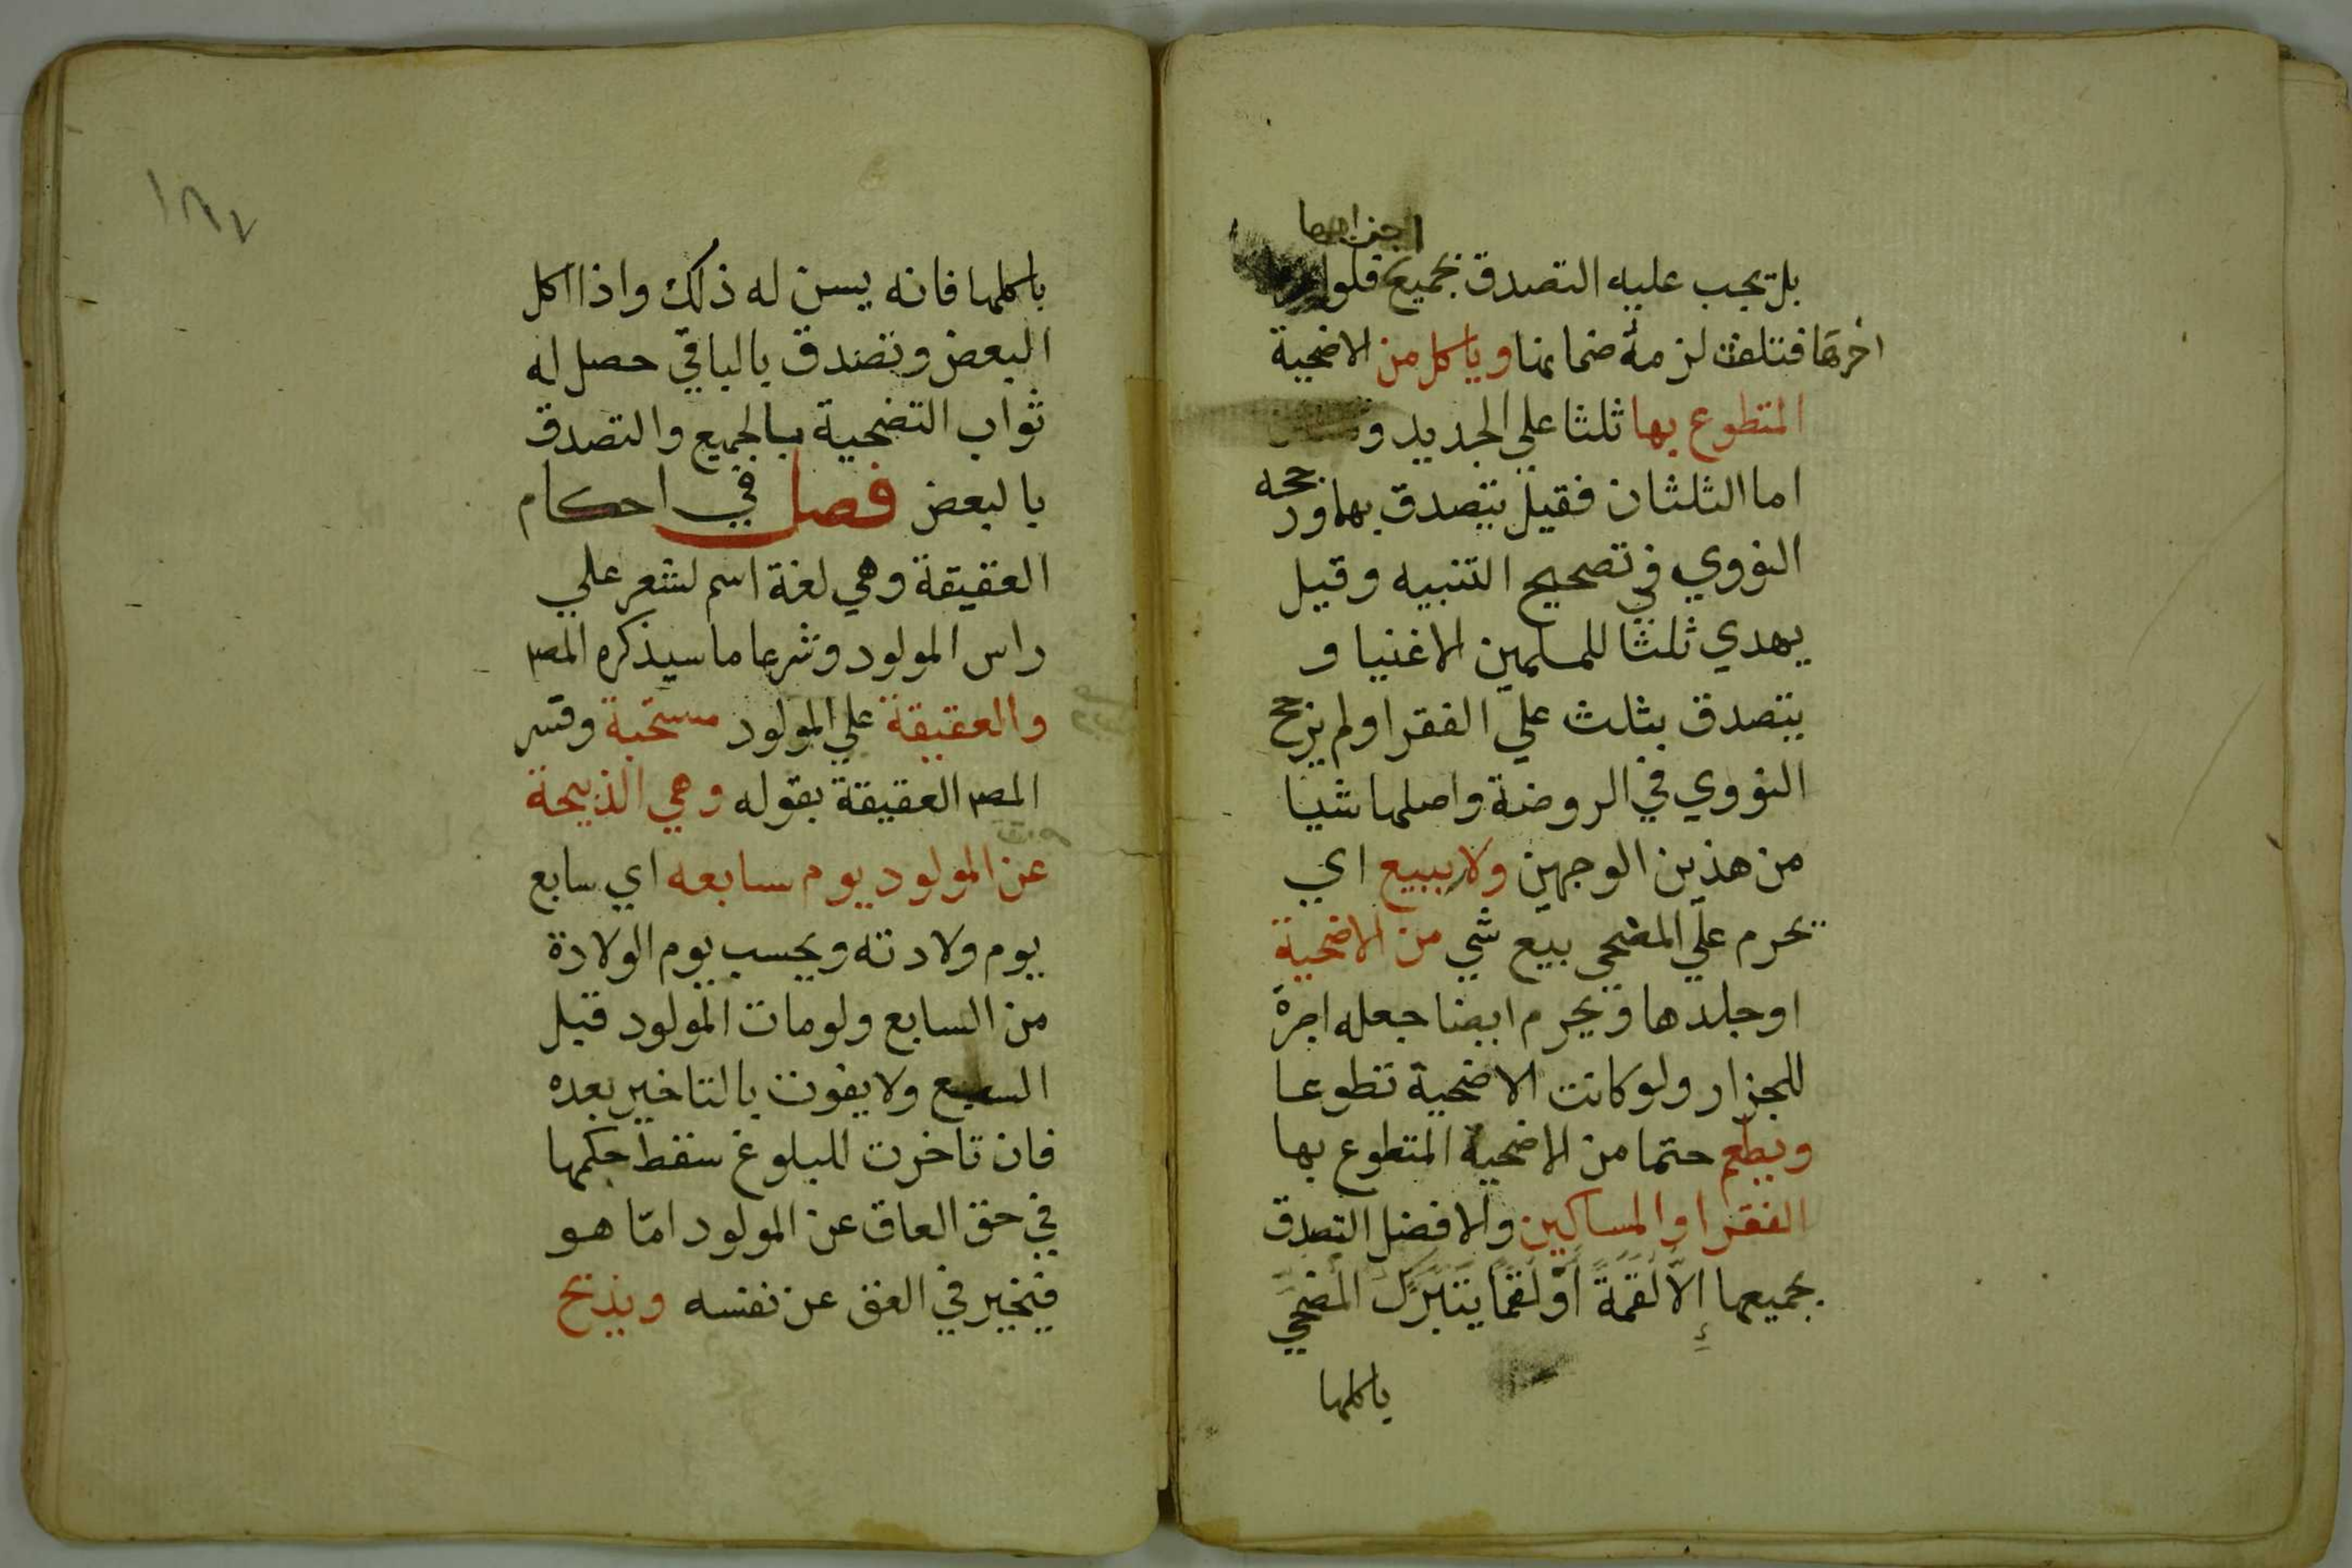 اجزاءها
بل يجب عليه التصدق بجميع فلو
اخرها فتلفت لزمه ضمانها وياكل من الاضحية
المتطوع بها ثلثا علي الجديد و
اما الثلثان فقيل يتصدق بهما ورجحه
النووي في تصحيح التنبيه وقيل
يهدي ثلثا للمسلمين الاغنيا و
يتصدق بثلث علي الفقرا ولم يرجح
النووي في الروضة واصلها شيا
من هذين الوجهين ولا يبيع اي
يحرم علي المضحي بيع شي من الاضحية
او جلدها ويحرم ايضا جعله اجرة
للجزار ولو كانت الاضحية تطوعا
ويطعم حتما من الاضحية المتطوع بها
الفقرا والمساكين والافضل التصدق
بجميعها إلا لقمة أو لقما يتبرك المضحي
باكلها
١٨٧
باكلها فانه يسن له ذلك واذا اكل
البعض وتصدق بالباقي حصل له
ثواب التضحية بالجميع والتصدق
بالبعض فصل في احكام
العقيقة وهي لغة اسم لشعر علي
راس المولود وشرعا ما سيذكره المص
والعقيقة علي المولود مستحبة وفسر
المص العقيقة بقوله وهي الذبيحة
عن المولود يوم سابعه اي سابع
يوم ولادته ويحسب يوم الولادة
من السابع ولومات المولود قبل
السابع ولا يفوت بالتاخير بعده
فان تاخرت للبلوغ سقط حكمها
في حق العاق عن المولود امّا هو
فيخير في العق عن نفسه ويذبح